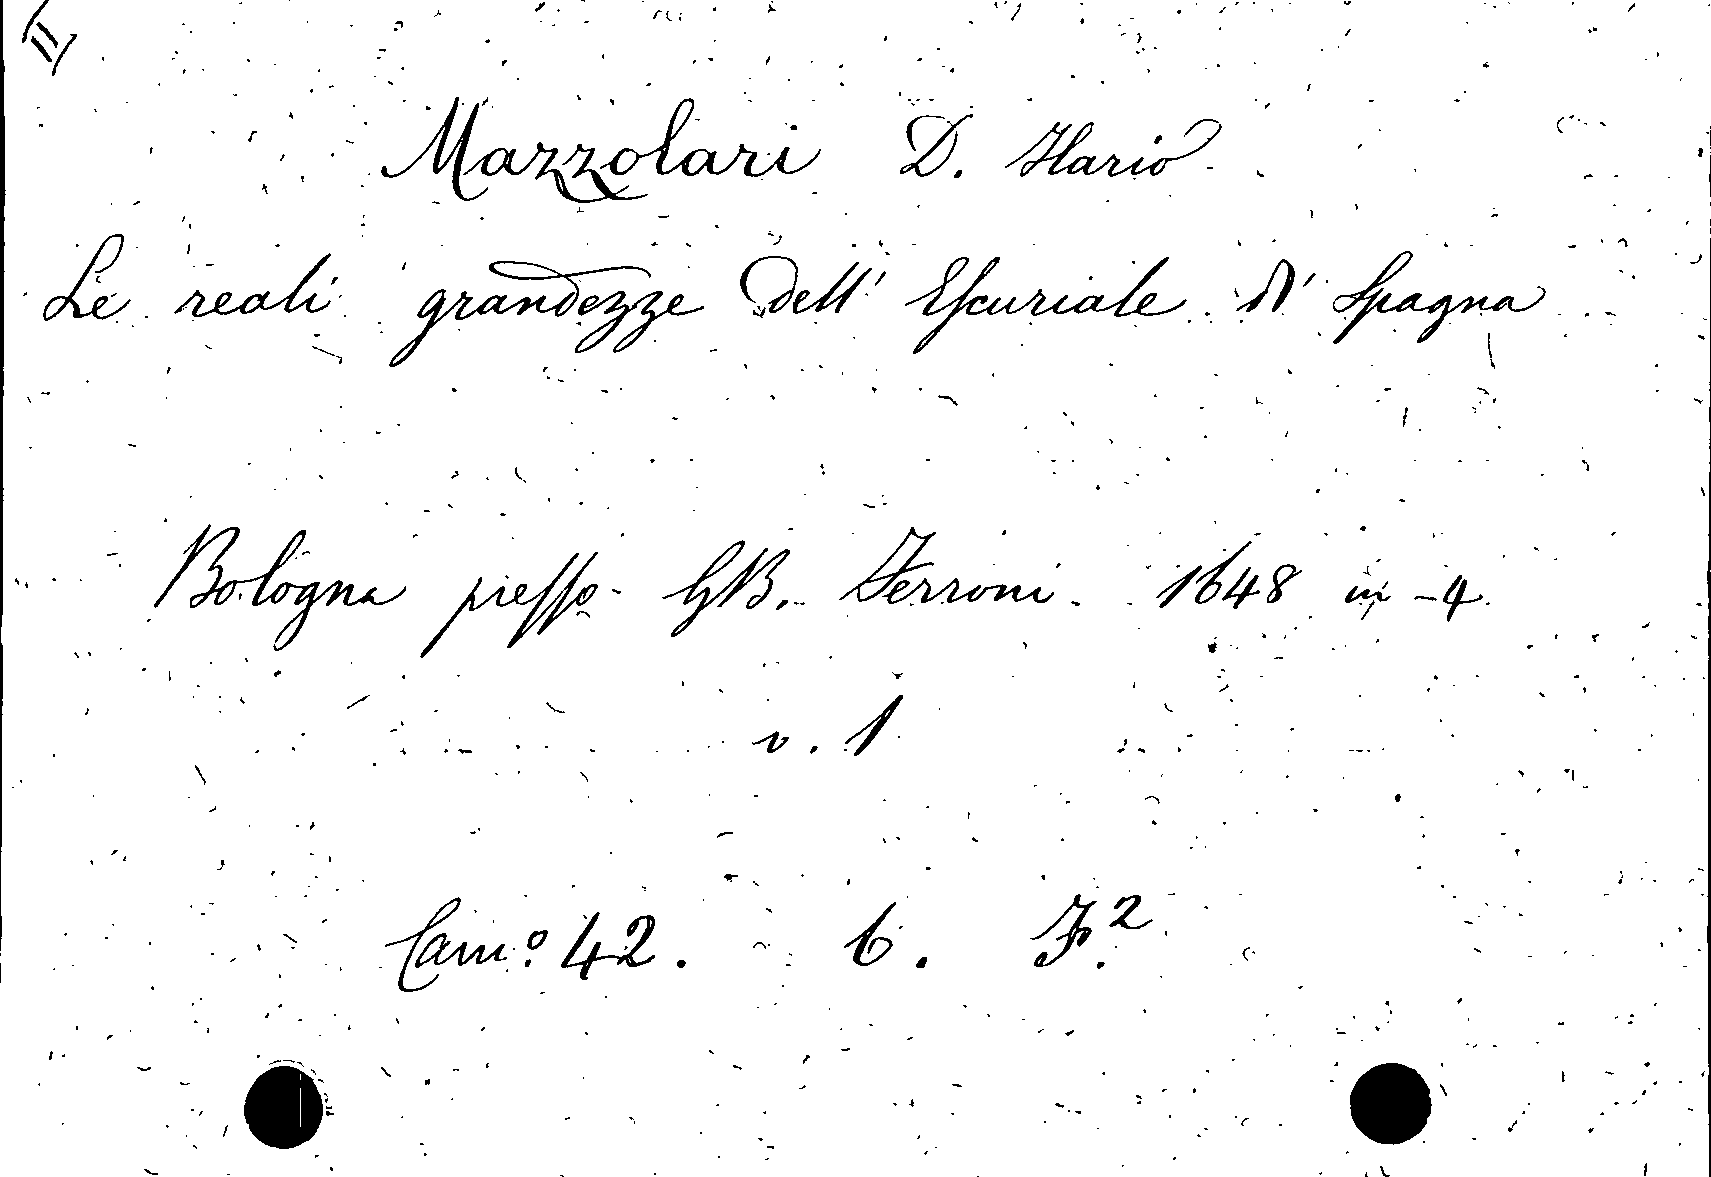 II
Mazzolari D. Ilario
Le reali grandezze dell' Eſcuriale di Spagna
Bologna preſſo GB. Ferroni 1648 in-4
v. 1
Cam.º 42. b. F.²